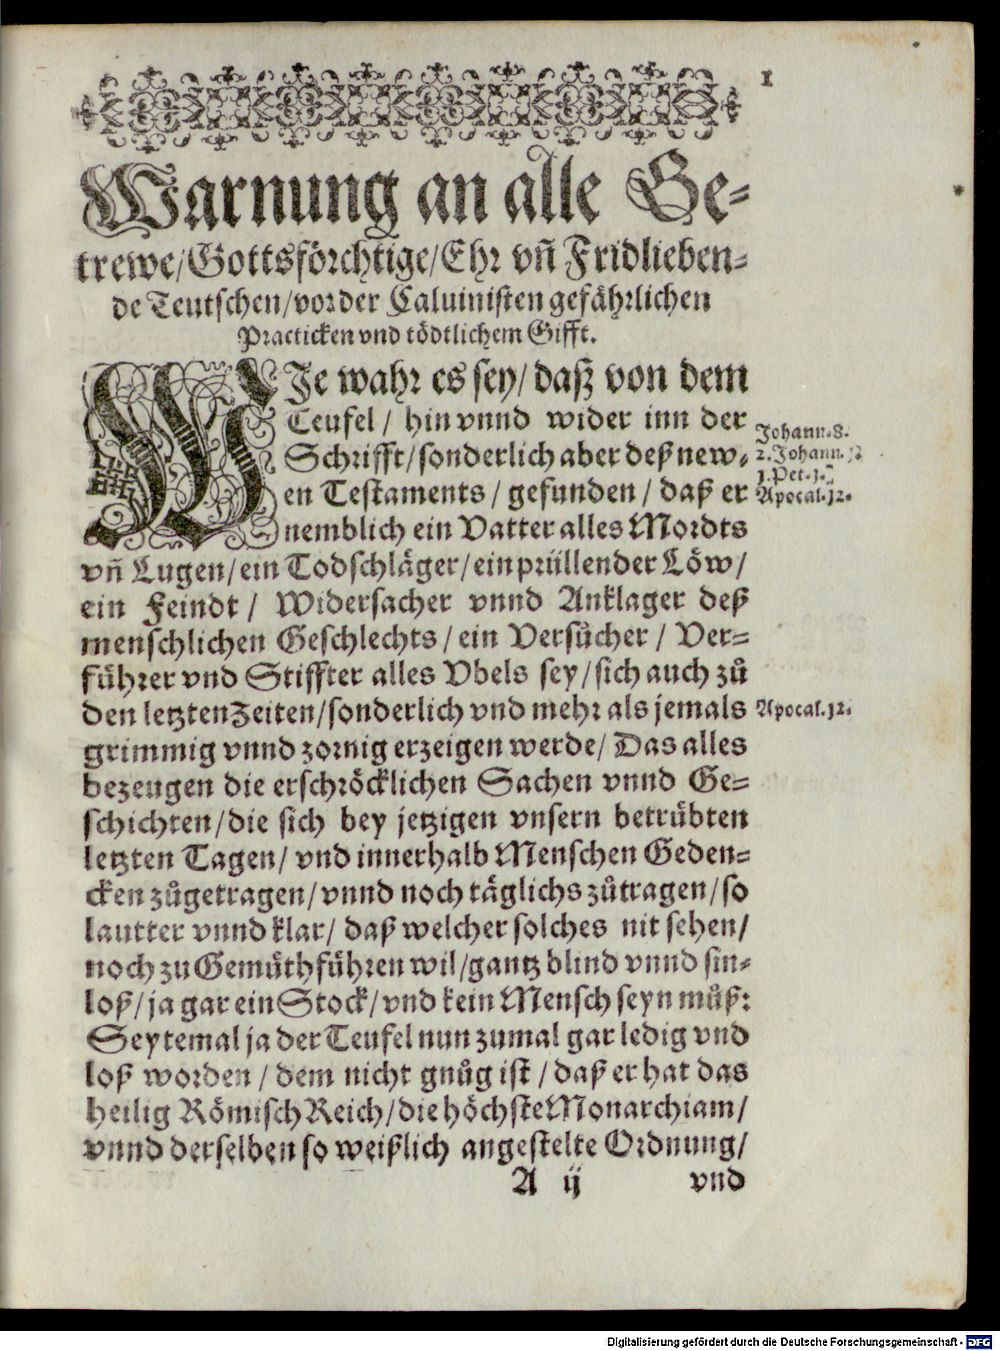 1
Warnung an alle Ge-
trewe/Gottsförchtige/Ehr vñ Fridlieben-
de Teutschen/vor der Caluinisten gefährlichen
Practicken vnd tödtlichem Gifft.
WIe wahr es sey/daß von dem
Teufel/ hin vnnd wider inn der
Schrifft/sonderlich aber deß new-
en Testaments/gefunden/daß er
nemblich ein Vatter alles Mordts
vñ Lugen/ein Todschläger/ein prüllender Löw/
ein Feindt/ Widersacher vnnd Anklager deß
menschlichen Geschlechts/ein Versůcher/ Ver-
führer vnd Stiffter alles Vbels sey/sich auch zů
den letzten Zeiten/sonderlich vnd mehr als jemals
grimmig vnnd zornig erzeigen werde/ Das alles
bezeugen die erschröcklichen Sachen vnnd Ge-
schichten/die sich bey jetzigen vnsern betrübten
letzten Tagen/ vnd innerhalb Menschen Geden-
cken zůgetragen/vnnd noch täglichs zůtragen/so
lautter vnnd klar/ daß welcher solches nit sehen/
noch zu Gemüth führen wil/gantz blind vnnd sin-
loß/ja gar ein Stock/vnd kein Mensch seyn můß:
Seytemal ja der Teufel nun zumal gar ledig vnd
loß worden/dem nicht gnůg ist/daß er hat das
heilig Römisch Reich/die höchste Monarchiam/
vnnd derselben so weißlich angestelte Ordnung/
A ij vnd
Johann.8.
2.Johann.
1.Pet.
Apocal.12.
Apocal.12.
Digitalisierung gefördert durch die Deutsche Forschungsgemeinschaft - DFG